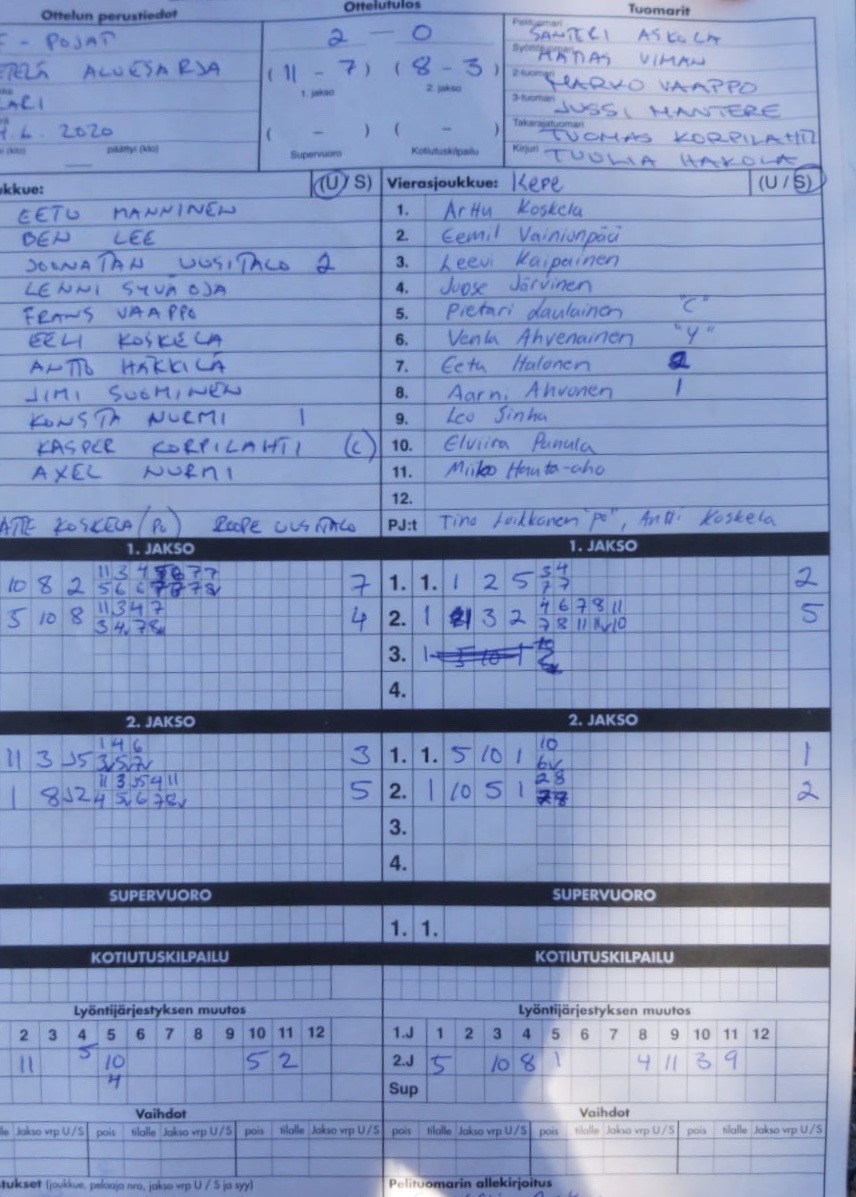 Ottelun perustiedot Ottelutulos Tuomarit
- POJAT 2 - 0 Pelituomari SANTERI ASKOLA
ETELÄ ALUESARJA (11 - 7) (8 - 3) Syöttötuomari MATIAS VIMAN
LARI 1. jakso 2. jakso 2-tuomari MARKO VAAPPO
3-tuomari JUSSI MANTERE
.6. 2020 ( - ) ( - ) Takarajatuomari TUOMAS KORPILAHTI
(klo) päättyi (klo) Supervuoro Kotiutuskilpailu Kirjuri TUULIA HAKOLA
ukkue: (U / S) Vierasjoukkue: KePe (U / S)
EETU MANNINEN 1. Arttu Koskela
BEN LEE 2. Eemil Vainionpää
JOONATAN UUSITALO 2 3. Leevi Kaipainen
LENNI SYVÄOJA 4. Juose Järvinen
FRANS VAAPPO 5. Pietari Laulainen "C"
EELI KOSKELA 6. Venla Ahvenainen "Y"
ANTTO HÄKKILÄ 7. Eetu Halonen 2
JIMI SUOMINEN 8. Aarni Ahvonen 1
KONSTA NURMI 1 9. Leo Sinha
KASPER KORPILAHTI (C) 10. Elviira Punula
AXEL NURMI 11. Miiko Hauta-aho
12.
ATTE KOSKELA (PO) ROOPE UUSITALO PJ:t Tino Loikkanen "po", Antti Koskela
1. JAKSO 1. JAKSO
10 8 2 11 3 4 7 7 7 1. 1. 1 2 5 3 4 2
5 6 6 7 7 7
5 10 8 11 3 4 7 4 2. 1 3 2 4 6 7 8 11 5
3 4 7 8 7 8 11 11 10
3. 1
4.
2. JAKSO 2. JAKSO
11 3 J5 1 4 6 3 1. 1. 5 10 1 10 1
3 5 7 6
1 8 J2 11 3 J5 4 11 5 2. 1 10 5 1 2 8 2
4 5 6 7 8 7 8
3.
4.
SUPERVUORO SUPERVUORO
1. 1.
KOTIUTUSKILPAILU KOTIUTUSKILPAILU
Lyöntijärjestyksen muutos Lyöntijärjestyksen muutos
2 3 4 5 6 7 8 9 10 11 12 1.J 1 2 3 4 5 6 7 8 9 10 11 12
11 5 10 5 2 2.J 5 10 8 1 4 11 3 9
4 Sup
Vaihdot Vaihdot
Jakso vrp U / S pois tilalle Jakso vrp U / S pois tilalle Jakso vrp U / S pois tilalle Jakso vrp U / S pois tilalle Jakso vrp U / S pois tilalle Jakso vrp U / S
tukset (joukkue, pelaaja nro, jakso vrp U / S ja syy) Pelituomarin allekirjoitus